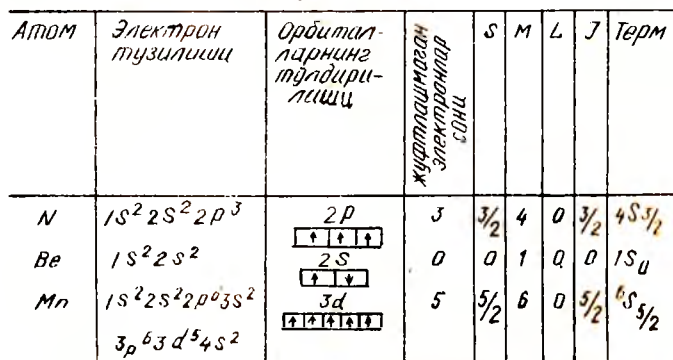 Атом Электрон тузилиши Орбитал-ларнинг тулдирилиши жуфтлашмаган электронлар сони S M L J Терм
N 1S² 2S² 2P³ 2P ↑ ↑ ↑ 3 3/2 4 0 3/2 4S3/2
Be 1S² 2S² 2S ↑ ↓ 0 0 1 0 0 1S0
Mn 1S² 2S² 2P⁶ 3S² 3d ↑ ↑ ↑ ↑ ↑ 5 5/2 6 0 5/2 ⁶S5/2
3p⁶ 3d⁵ 4S²